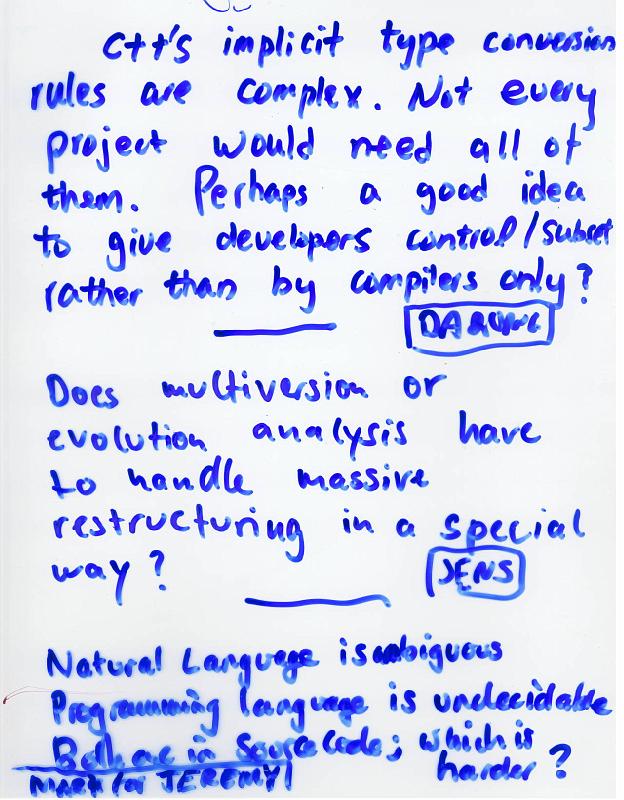 C++'s implicit type conversion
rules are complex. Not every
project would need all of
them. Perhaps a good idea
to give developers control/subset
rather than by compilers only?
Does multiversion or
evolution analysis have
to handle massive
restructuring in a special
way?
JENS
Natural Language is ambiguous
Programming language is undecidable
in Source Code; which is
harder?
MARK for JEREMY